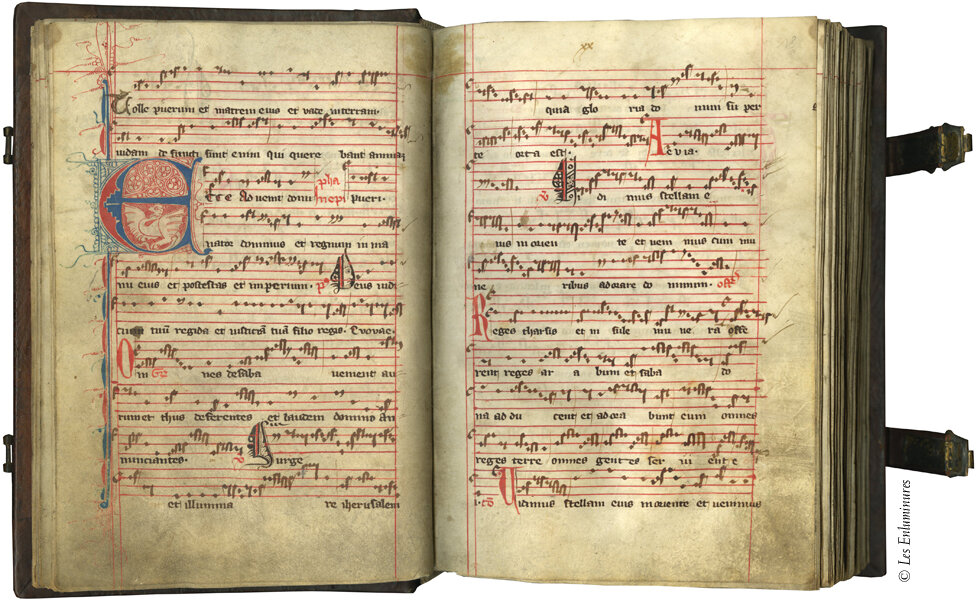 Tolle puerum et matrem eius et vade in terram
iudam de functi sunt enim qui quere bant animam
Ecce Advenit domi pha nepi pueri
nator dominus et regnum in ma
nu eius et potestas et imperium. ps Deus iudi
cium tuum regi da et iusticiam tuam filio regis. Evovae.
Om Gr nes de saba venient au
rum et thus deferentes et laudem domino an
nunciantes. V Surge
et illumina re iherusalem
xx
quia glo ria do mini sup per
te orta est. A evia.
V Vi di mus stellam e
ius in orien te et veni mus cum mu
ne ribus adorare do minum. offer
Reges tharsis et in sule mu ne ra offe
rent reges ar a bum et saba do
na ad du cent et adora bunt eum omnes
reges terre omnes gentes ser vi ent e
i. co Vidimus stellam eius in oriente et venimus
© Les Enluminures